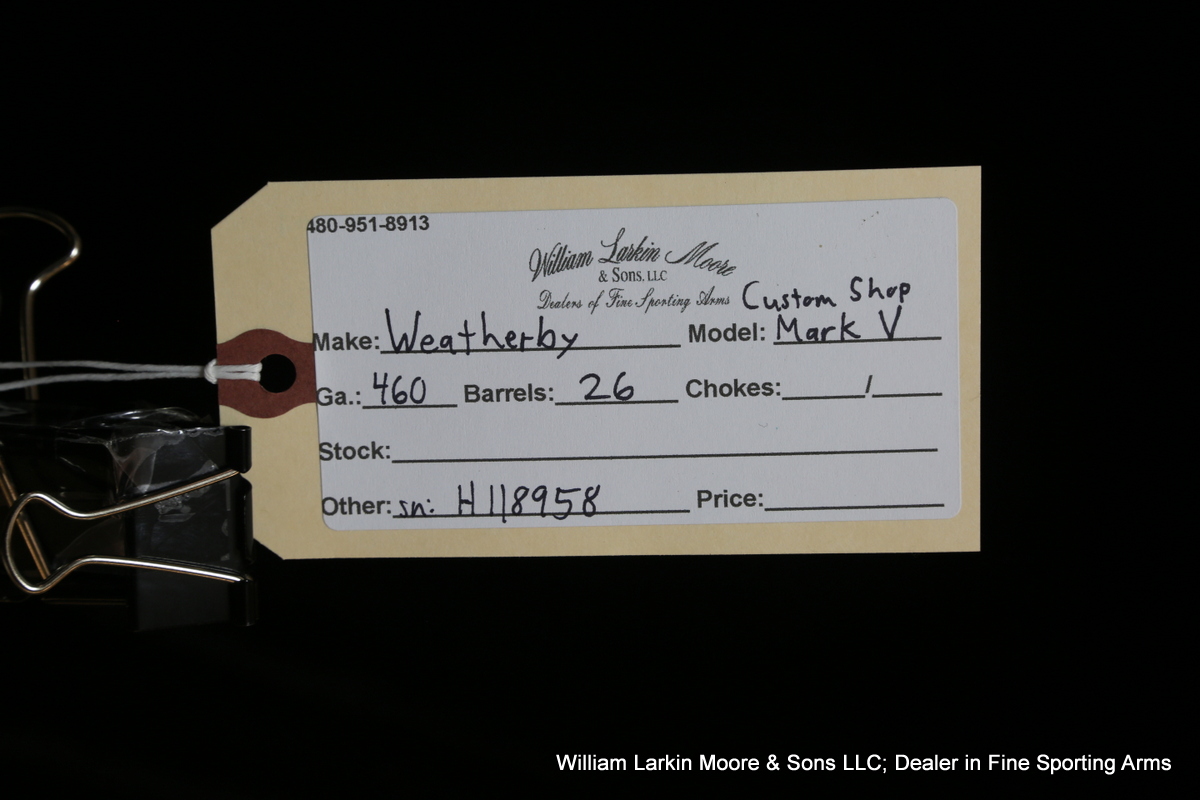 480-951-8913
William Larkin Moore
& Sons, LLC
Dealers of Fine Sporting Arms
Custom Shop
Make: Weatherby Model: Mark V
Ga.: 460 Barrels: 26 Chokes: /
Stock:
Other: sn: H118958 Price:
William Larkin Moore & Sons LLC; Dealer in Fine Sporting Arms